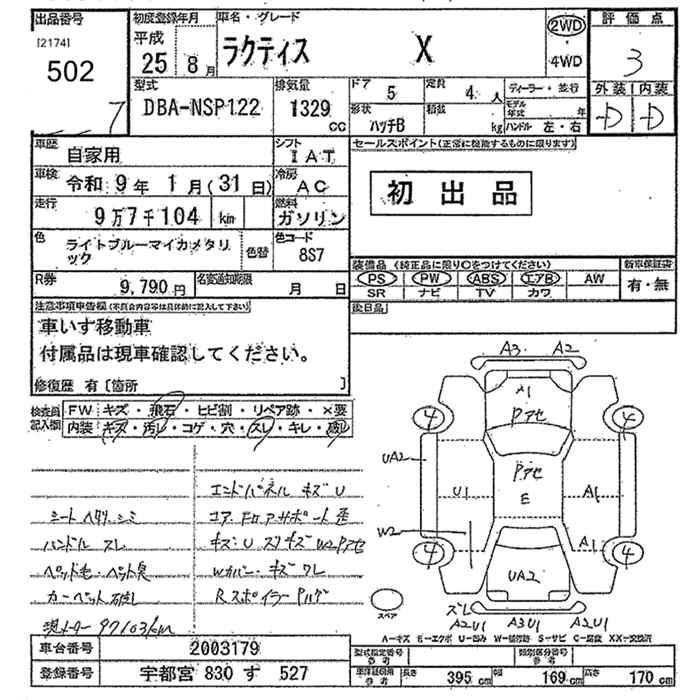 出品番号
[2174]
502
初度登録年月
平成
25 8月
車名・グレード
ラクティス X
2WD
4WD
評価点
3
外装 内装
D D
型式
DBA-NSP122
排気量
1329
cc
ドア
5
定員
4 人
形状
ハッチB
積載
kg
ディーラー・並行
モデル年式 年
ハンドル 左・右
車歴
自家用
シフト
IAT
車検
令和 9年 1月(31日)
冷房
AC
走行
9万7千104 km
燃料
ガソリン
色
ライトブルーマイカメタリ
ック
色替
色コード
8S7
R券
9,790円
名変通知期限
月 日
セールスポイント(正常に機能するものに限ります)
初出品
装備品 (純正品に限り○をつけてください)
新車保証書
PS PW ABS エアB AW
SR ナビ TV カワ
有・無
後日品
注意事項申告欄(不具合内容等は具体的に記入して下さい)
車いす移動車
付属品は現車確認してください。
修復歴 有〔箇所 〕
検査員
記入欄
FW キズ・飛石・ヒビ割・リペア跡・×要
内装 キズ・汚レ・コゲ・穴・スレ・キレ・破レ
エンドパネル キズU
シート ヘタリ シミ
コア.Fロアサポート歪
ハンドル スレ
ペット毛・ペット臭
カーペット破レ
Rスポイラー
現メーター 97103km
A3 A2
A1
Pアセ
4 4
UA2
Pアセ
E
U1
A1
W2
A1
4 4
UA2
スペア
ズレ
A2U1 A3U1 A2U1
A-キズ E-エクボ U-凹み W-補修跡 S-サビ C-腐蝕 XX-交換済
車台番号
2003179
登録番号
宇都宮 830 す 527
型式指定番号
参考
類別区分番号
参考
車検証用
参考
長さ 395 cm
幅 169 cm
高さ 170 cm